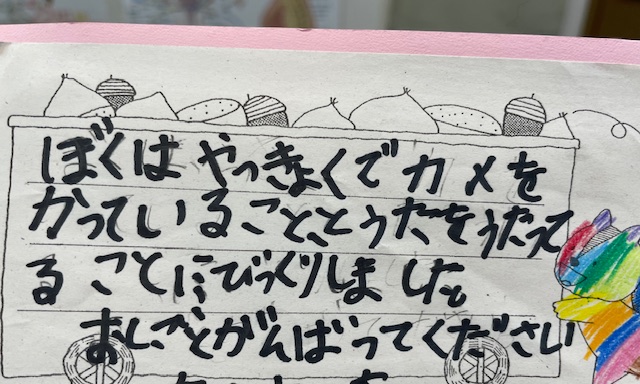 ぼくはやっきょくでカメを
かっていること、とうだをうだって
ることにびっくりしました
おしごとがんばってください